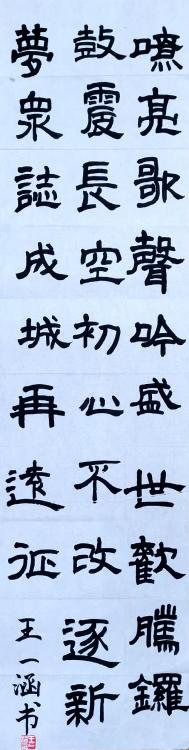 嘹亮歌聲吟盛世歡騰鑼
鼓震長空初心不改逐新
夢衆誌成城再遠征
王一涵书